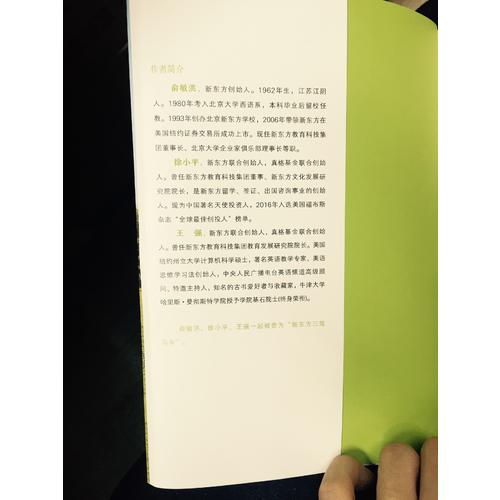 作者简介
俞敏洪，新东方创始人。1962年生，江苏江阴
人。1980年考入北京大学西语系，本科毕业后留校任
教。1993年创办北京新东方学校，2006年带领新东方在
美国纽约证券交易所成功上市。现任新东方教育科技集
团董事长、北京大学企业家俱乐部理事长等职。
徐小平，新东方联合创始人，真格基金联合创始
人。曾任新东方教育科技集团董事、新东方文化发展研
究院院长，是新东方留学、签证、出国咨询事业的创始
人。现为中国著名天使投资人，2016年入选美国福布斯
杂志“全球最佳创投人”榜单。
王 强，新东方联合创始人，真格基金联合创始
人。曾任新东方教育科技集团教育发展研究院院长。美国
纽约州立大学计算机科学硕士，著名英语教学专家、美语
思维学习法创始人，中央人民广播电台英语频道高级顾
问、特邀主持人，知名的古书爱好者与收藏家，牛津大学
哈里斯·曼彻斯特学院授予学院基石院士(终身荣衔)。
俞敏洪、徐小平、王强一起被誉为“新东方三驾
马车”。